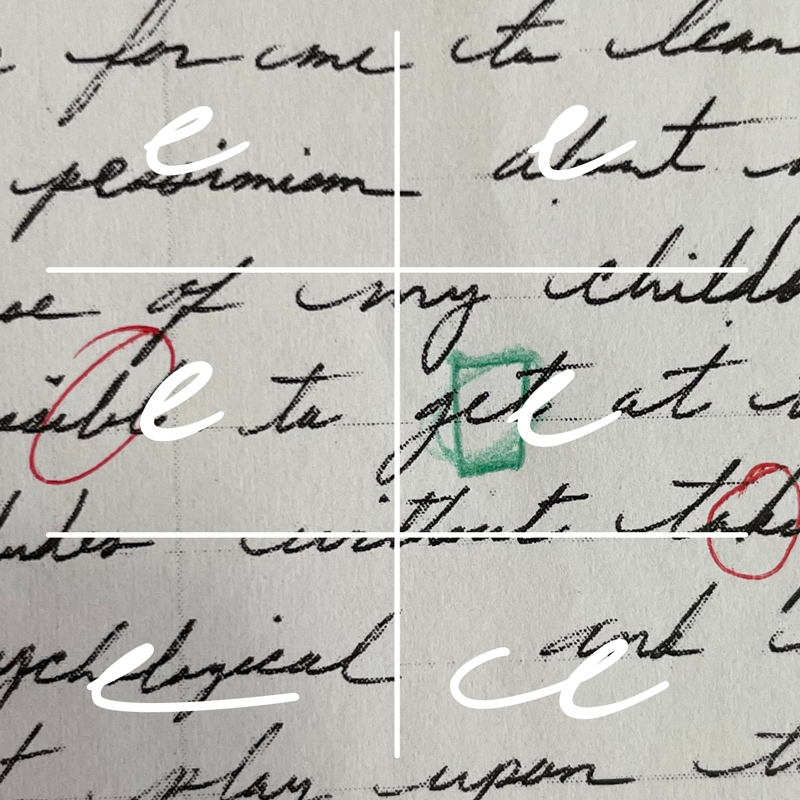 for me to lear
e e
pessimism about
se of my childh
e e
ssible to get at
udes without take
ychological and
e ce
play upon